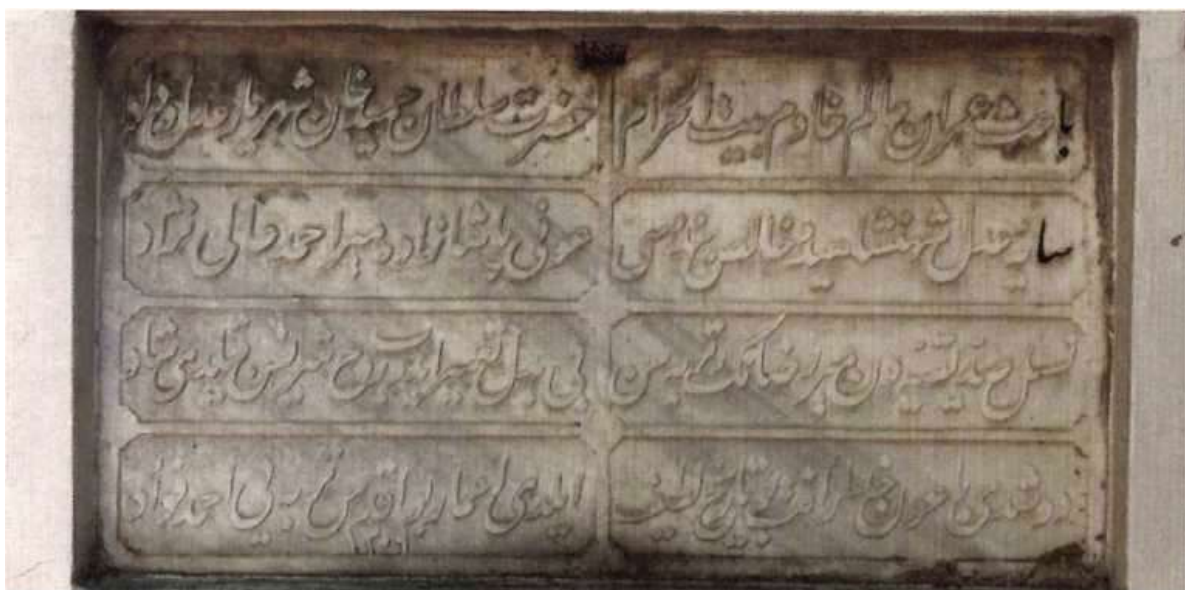 باعث عمران عالم خادم بيت الحرام حضرت سلطان حميد خان شهريار عدل و داد
سايه عدل شهنشاهيده خالص عونى پاشا زاده مير احمد عالى نژاد
نسل دن مير رضانك تربه سن بى بدل تعمير ايدوب روح شريفن قيلدى شاد
دوشدى راغب تاريخ لطيف ايلدى اعمار بو اقدس تربه يى احمد